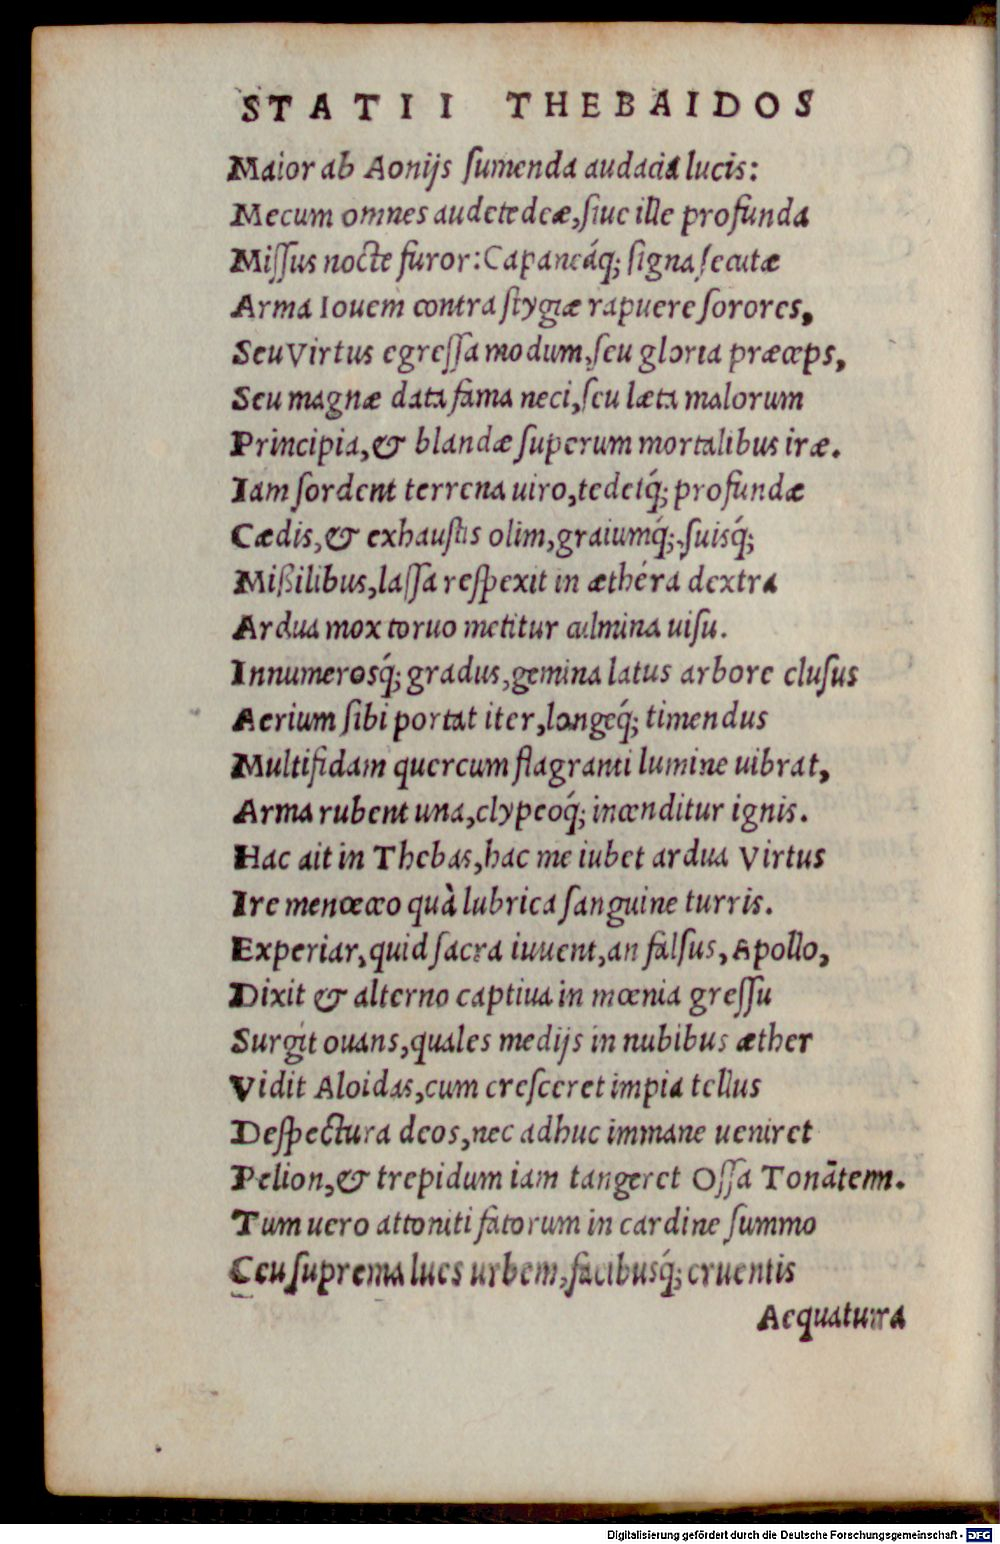 STATII THEBAIDOS
Maior ab Aonijs ſumenda audacia lucis:
Mecum omnes audete deæ, ſiue ille profunda
Miſſus nocte furor: Capaneáq; ſigna ſecutæ
Arma Iouem contra ſtygiæ rapuere ſorores,
Seu Virtus egreſſa modum, ſeu gloria præceps,
Seu magnæ data fama neci, ſeu læta malorum
Principia, & blandæ ſuperum mortalibus iræ.
Iam ſordent terrena uiro, tedetq́; profundæ
Cædis, & exhauſtis olim, graiumq́;, ſuisq́;
Mißilibus, laſſa reſpexit in æthéra dextra
Ardua mox toruo metitur culmina uiſu.
Innumerosq́; gradus, gemina latus arbore cluſus
Aerium ſibi portat iter, longeq́; timendus
Multifidam quercum flagranti lumine uibrat,
Arma rubent una, clypeoq́; incenditur ignis.
Hac ait in Thebas, hac me iubet ardua Virtus
Ire menœceo quà lubrica ſanguine turris.
Experiar, quid ſacra iuuent, an falſus, Apollo,
Dixit & alterno captiua in mœnia greſſu
Surgit ouans, quales medijs in nubibus æther
Vidit Aloidas, cum creſceret impia tellus
Deſpectura deos, nec adhuc immane ueniret
Pelion, & trepidum iam tangeret Oſſa Tonātem.
Tum uero attoniti fatorum in cardine ſummo
Ceu ſuprema lues urbem, facibusq́; cruentis
Aequatura
Digitalisierung gefördert durch die Deutsche Forschungsgemeinschaft - DFG